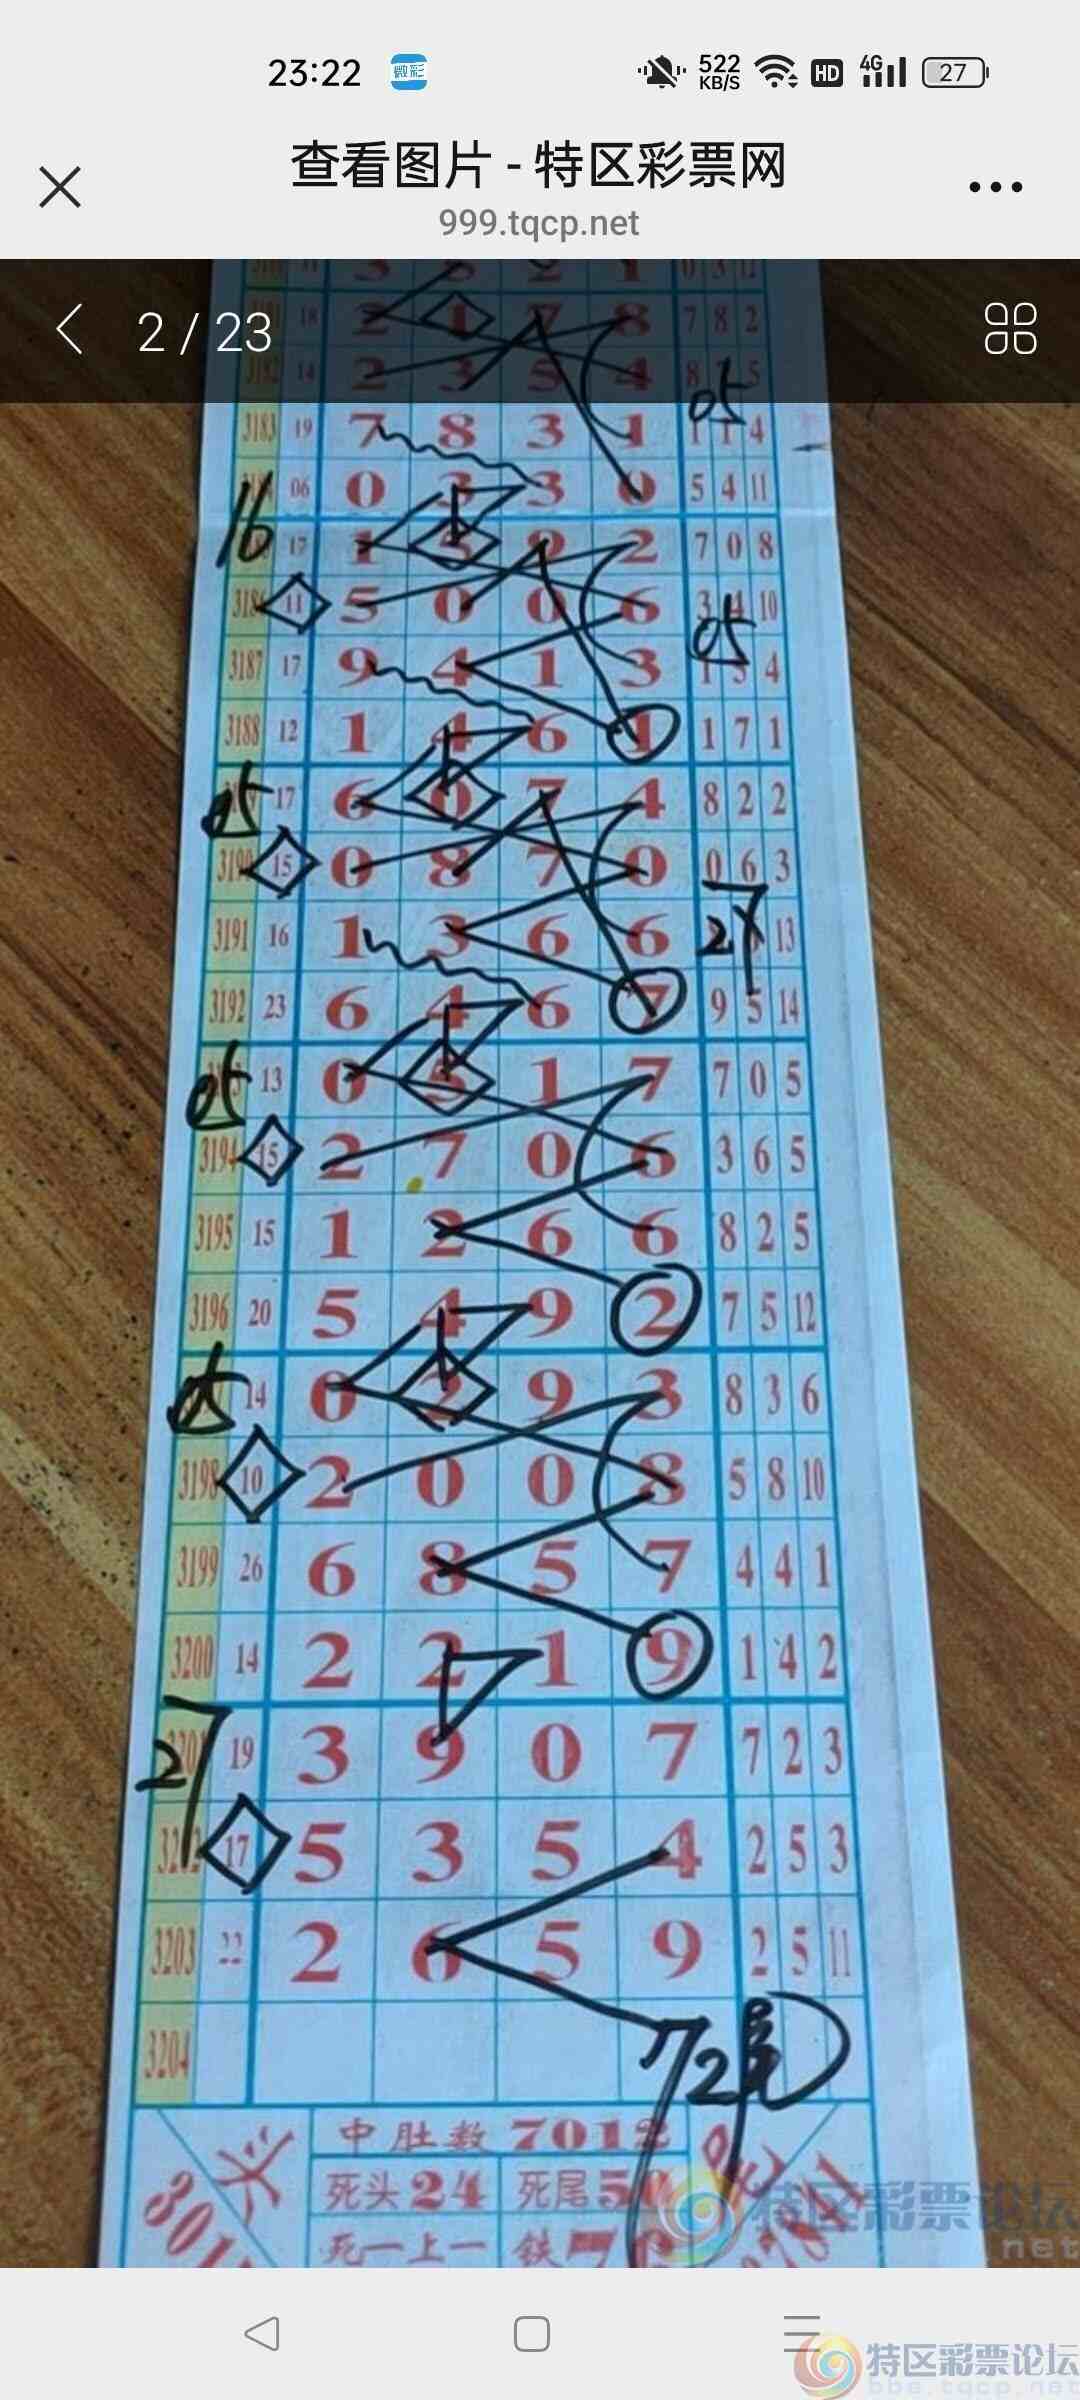 23:22 微彩 522 KB/S HD 4G 27
查看图片 - 特区彩票网
999.tqcp.net
2 / 23
18 2 1 7 8 7 8 2
3182 14 2 3 5 4 8 5
05
3183 19 7 8 3 1 1 1 4
06 0 3 3 0 5 4 11
16
17 1 5 9 2 7 0 8
11 5 0 0 6 3 4 10
05
3187 17 9 4 1 3 1 5 4
3188 12 1 4 6 1 1 7 1
05
17 6 0 7 4 8 2 2
3190 15 0 8 7 0 0 6 3
27
3191 16 1 3 6 6 13
3192 23 6 4 6 7 9 5 14
05
13 0 5 1 7 7 0 5
3194 15 2 7 0 6 3 6 5
3195 15 1 2 6 6 8 2 5
3196 20 5 4 9 2 7 5 12
05
14 0 2 9 3 8 3 6
3198 10 2 0 0 8 5 8 10
3199 26 6 8 5 7 4 4 1
3200 14 2 2 1 9 1 4 2
27
3201 19 3 9 0 7 7 2 3
17 5 3 5 4 2 5 3
3203 22 2 6 5 9 2 5 11
3204
72尾
中肚数 7012
死头24 死尾50
死一上一 铁
特区彩票论坛
特区彩票论坛
bbs.tqcp.net